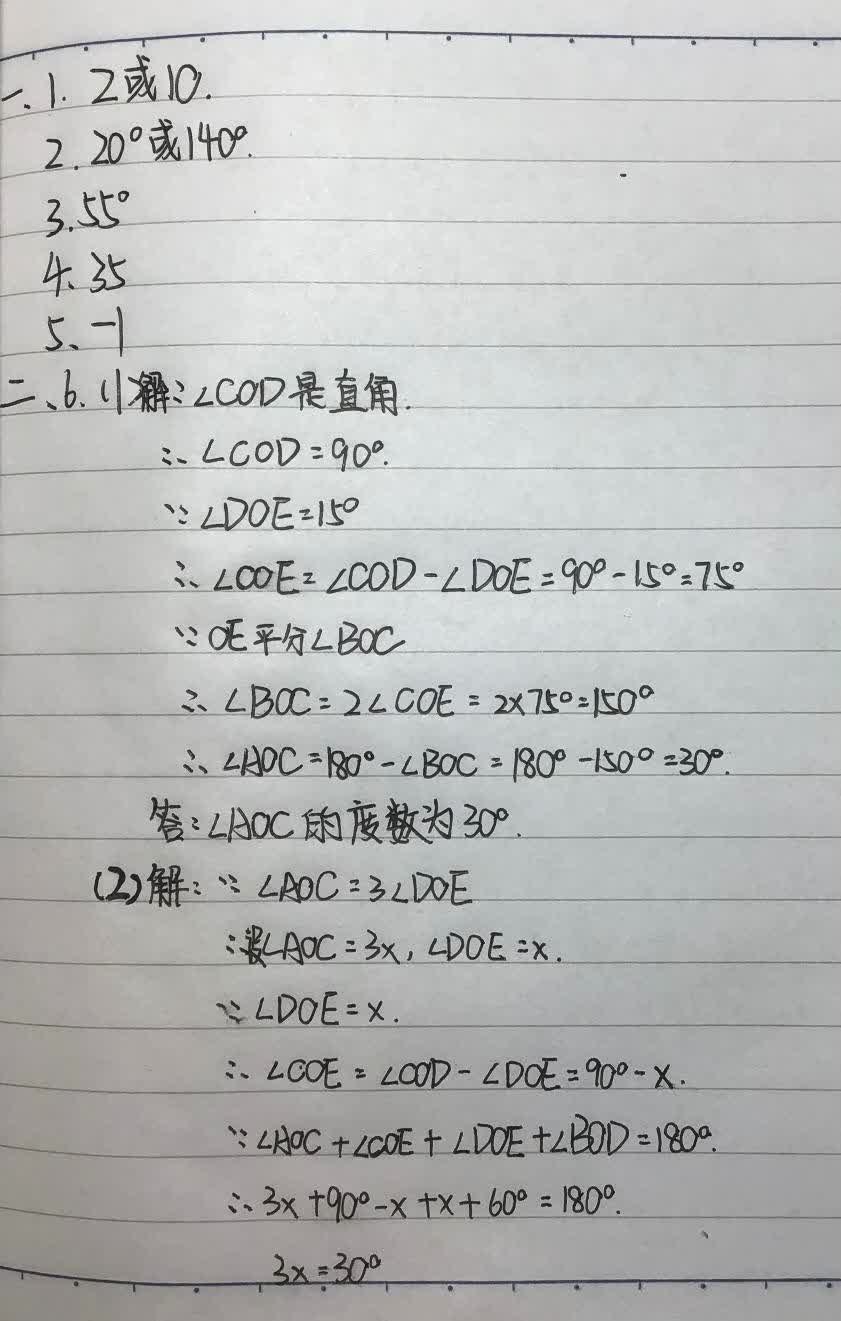 一、1. 2或10.
2. 20°或140°.
3. 55°
4、35
5、-1
二、6.(1)解:∠COD是直角.
∴∠COD=90°.
∵∠DOE=15°
∴∠COE=∠COD-∠DOE=90°-15°=75°
∵OE平分∠BOC
∴∠BOC=2∠COE=2×75°=150°
∴∠AOC=180°-∠BOC=180°-150°=30°.
答:∠AOC的度数为30°.
(2)解:∵∠AOC=3∠DOE
∴设∠AOC=3x,∠DOE=x.
∵∠DOE=x.
∴∠COE=∠COD-∠DOE=90°-x.
∵∠AOC+∠COE+∠DOE+∠BOD=180°.
∴3x+90°-x+x+60°=180°.
3x=30°